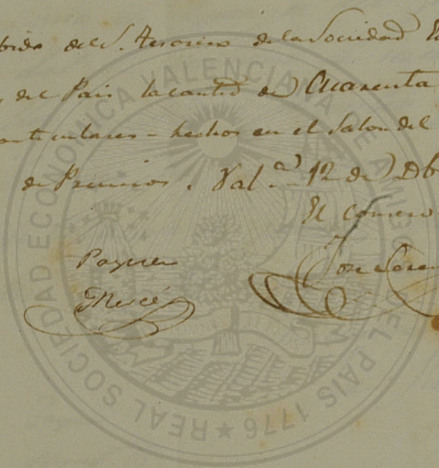 bido del S. Tesorero de la Sociedad
del Pais la cantd de Quarenta
articulares hechos en el Salon del
de Premios. Val.a 12 de Db
El Conserg
Paguese
Jose
REAL SOCIEDAD ECONOMICA VALENCIANA DE AMIGOS DEL PAIS 1776